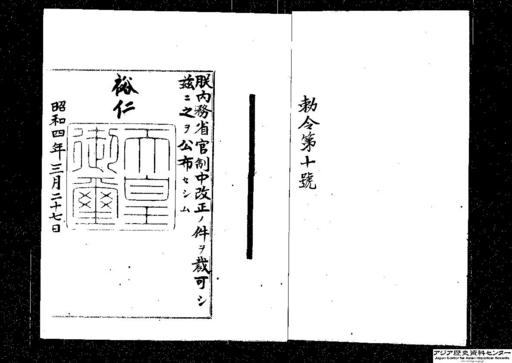 勅令第十號
朕內務省官制中改正ノ件ヲ裁可シ
玆ニ之ヲ公布セシム
裕仁
天皇
御璽
昭和四年三月二十七日
アジア歴史資料センター
Japan Center for Asian Historical Records